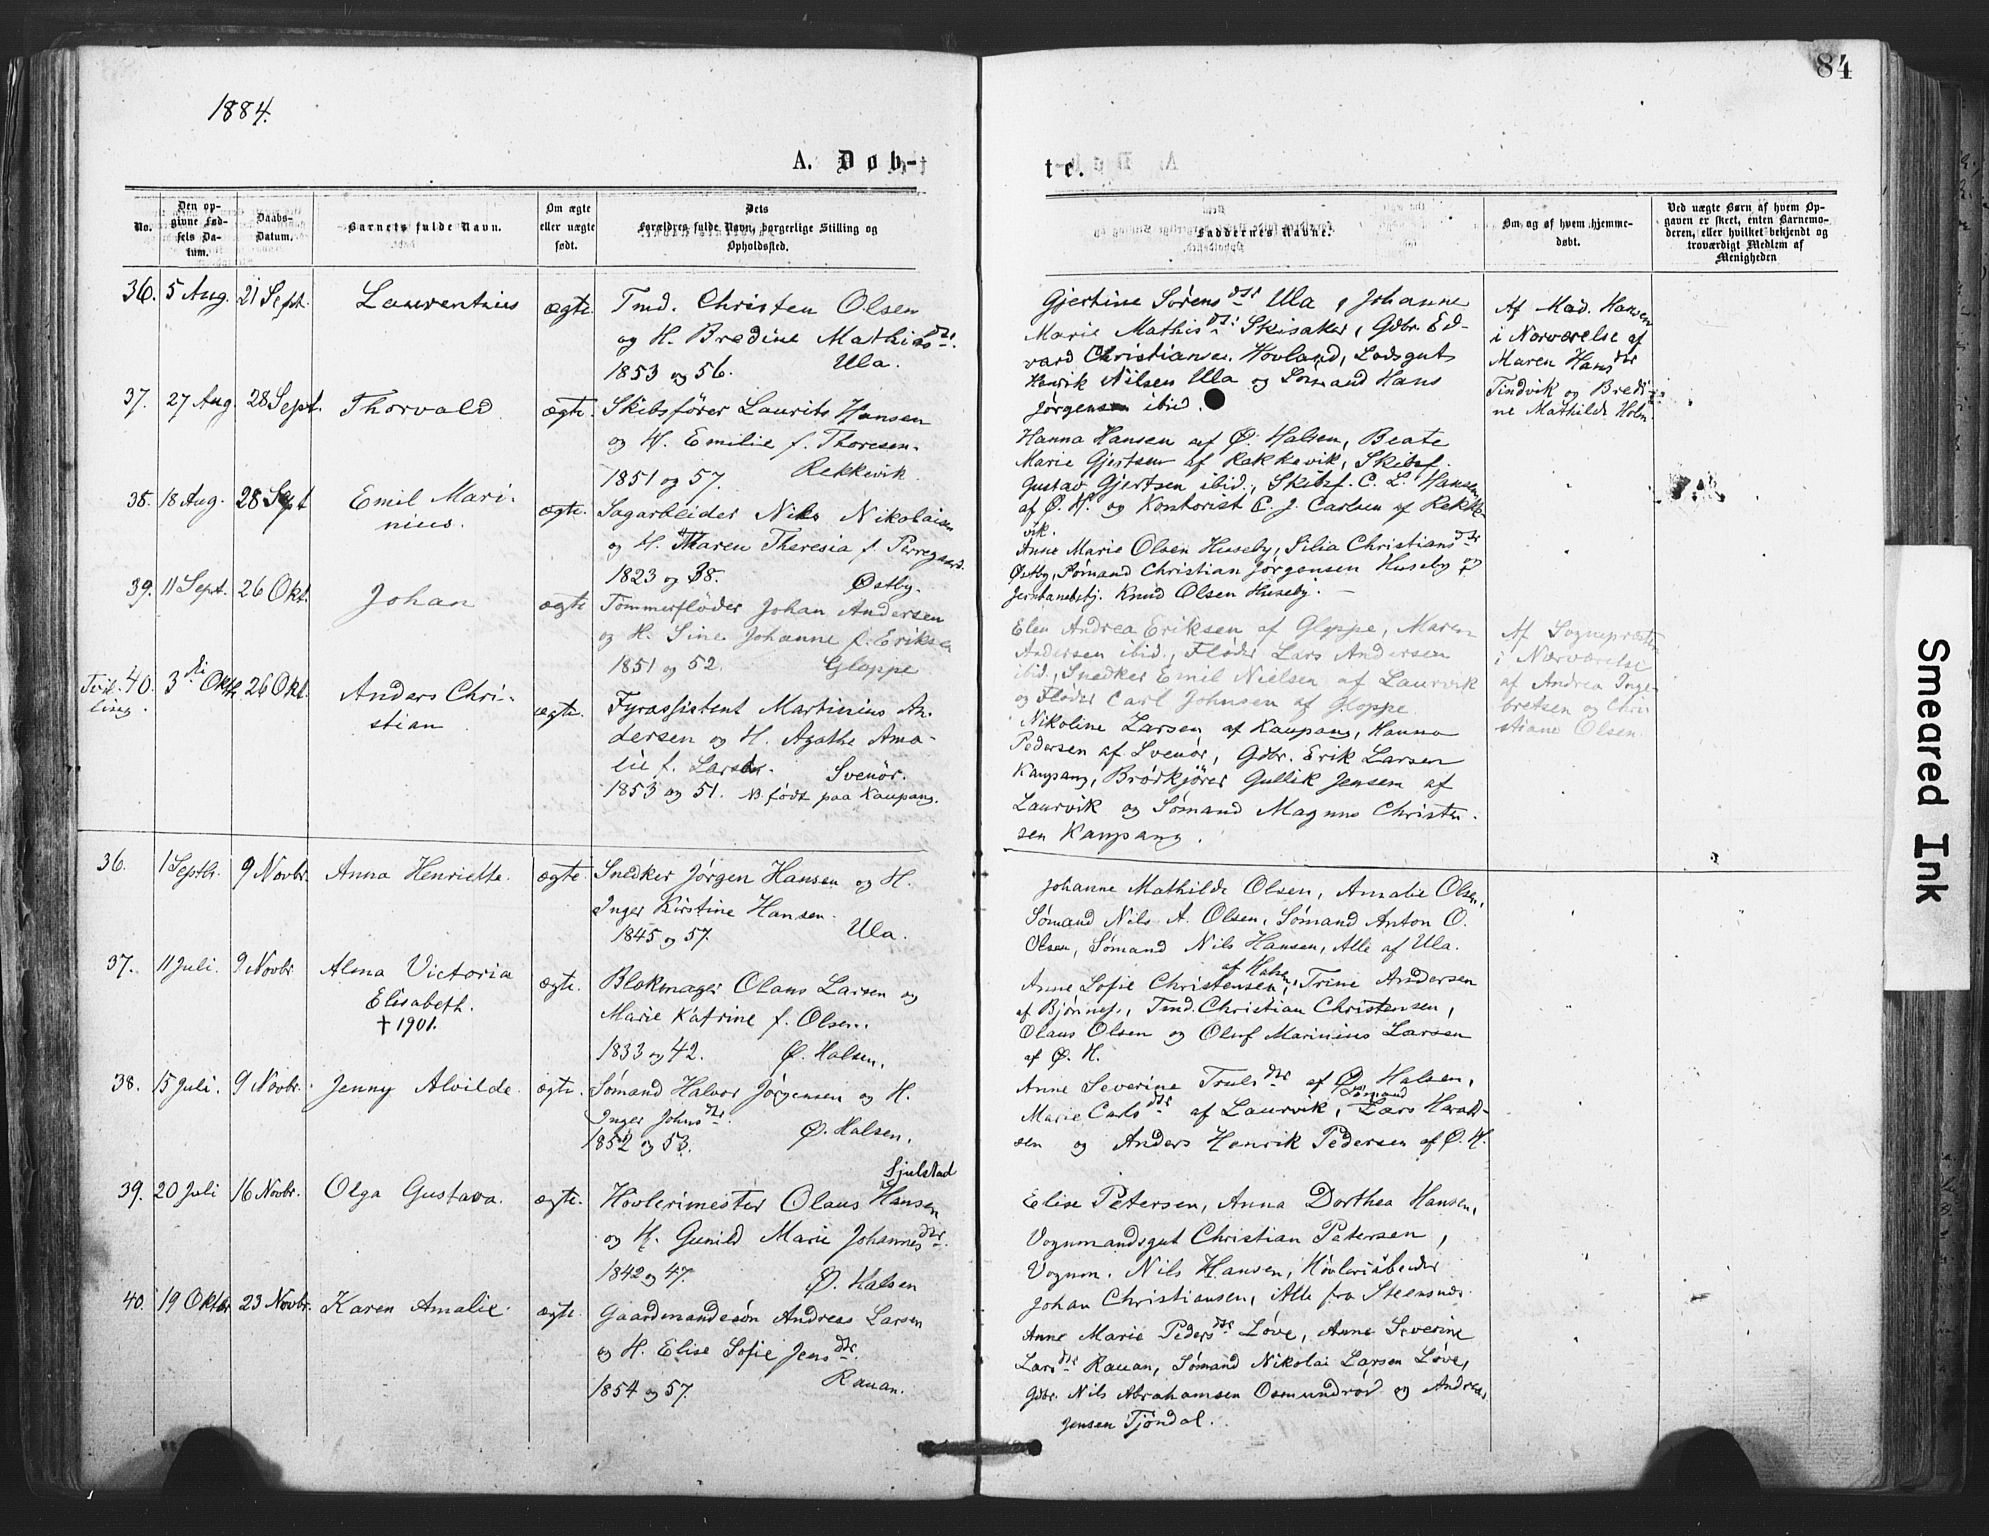 84
1884.
A. Døb-
te.
No.
Den op-
givne Fød-
sels Da-
tum.
Daabs-
Datum.
Barnets fulde Navn.
Om ægte
eller uægte
født.
Dets
Forældres fulde Navn, borgerlige Stilling og
Opholdssted.
Faddernes Navne.
Om og af hvem hjemme-
døbt.
Ved uægte Børn af hvem Op-
gaven er skeet, enten Barnemo-
deren, eller hvilket bekjendt og
troværdigt Medlem af
Menigheden
36. 5 Aug. 21 Sept. Laurentnius ægte.
Tmd. Christen Olsen
og H. Bredine Mathisdtr.
1853 og 56. Ula.
Gjertine Sørensdtr Ula, Johanne
Marie Mathisdtr Skisaker, Gdbr. Ed-
vard Christiansen Hovland, Lodsgut
Henrik Nilsen Ula og Sømand Hans
Jørgensen ibid.
Af Mad. Hansen
i Nærværelse af
Maren Hansdtr
Tindvik og Bredi-
ne Mathilde Holm
37. 27 Aug. 28 Sept. Thorvald ægte.
Skibsfører Laurits Hansen
og H. Emilie f. Thoresen.
1851 og 57. Rekkevik.
Hanna Hansen af Ø. Halsen, Beate
Marie Gjertsen af Rekkevik, Skibsf.
Gustav Gjertsen ibid., Skibsf. C. L. Hansen
af Ø. H. og Kontorist C. J. Carlsen af Rekke-
vik.
38. 18 Aug. 28 Sept Emil Mari-
nius. ægte.
Sagarbeider Nils Nikolaisen
og H. Maren Theresia f. Perregaard.
1823 og 38. Østby.
Anne Marie Olsen Huseby, Silia Christiansdtr
Østby, Sømand Christian Jørgensen Huseby og
Jernbanebetj. Knud Olsen Huseby.
39. 11 Sept. 26 Okt. Johan ægte
Tømmerfløder Johan Andersen
og H. Sine Johanne f. Eriksen
1851 og 52. Gloppe
Elen Andrea Eriksen af Gloppe, Maren
Andersen ibid., Fløder Lars Andersen
ibid., Snedker Emil Nielsen af Laurvik
og Fløder Carl Johnsen af Gloppe.
Af Sognepræsten
i Nærværelse
af Andrea Inge-
bretsen og Chri-
stiane Olsen.
Tvil-
ling.
40. 3die Oktb. 26 Okt. Anders Chri-
stian ægte.
Fyrassistent Martinius An-
dersen og H. Agathe Ama-
lie f. Larsen. Svenör.
1853 og 51. NB. født paa Kaupang.
Nikoline Larsen af Kaupang, Hanna
Pedersen af Svenör, Gdbr. Erik Larsen
Kaupang, Brödkjörer Gullik Jensen af
Laurvik og Sømand Magnus Christen-
sen Kaupang.
36. 1 Septbr. 9 Novbr. Anna Henriette. ægte.
Snedker Jørgen Hansen og H.
Inger Kirstine Hansen.
1845 og 57. Ula.
Johanne Mathilde Olsen, Amalie Olsen,
Sømand Nils A. Olsen, Sømand Anton O.
Olsen, Sømand Nils Hansen, Alle af Ula.
37. 11 Juli. 9 Novbr Alma Victoria
Elisabeth.
† 1901. ægte.
Blokmager Olaus Larsen og
Marie Katrine f. Olsen.
1833 og 42. Ø. Halsen.
Anne Sofie Christensen, af Halsen, Trine Andersen
af Bjønnes, Tmd. Christian Christensen,
Olaus Olsen og Oluf Marinius Larsen
af Ø. H.
38. 15 Juli. 9 Novbr. Jenny Alvilde. ægte.
Sømand Halvor Jørgensen og H.
Inger Johnsdtr.
1852 og 53. Ø. Halsen.
Anne Severine Trulsdtr af Ø. Halsen,
Marie Carlsdtr af Laurvik, Sømand Lars Harald-
sen og Anders Henrik Pedersen af Ø. H.
39. 20 Juli 16 Novbr. Olga Gustava. ægte.
Sjulstad
Høvlerimester Olaus Hansen
og H. Gunild Marie Johannesdtr.
1842 og 47. Ø. Halsen
Elise Petersen, Anna Dorthea Hansen,
Vognmandsgut Christian Petersen,
Vognm. Nils Hansen, Høvleriarbeider
Johan Christiansen, Alle fra Steensnæs.
40. 19 Oktbr 23 Novbr. Karen Amalie. ægte.
Gaardmandssön Andreas Larsen
og H. Elise Sofie Jensdtr.
1854 og 57. Rauan.
Anne Marie Pedersdtr Løve, Anne Severine
Larsdtr Rauan, Sømand Nikolai Larsen Løve,
Gdbr. Nils Abrahamsen Osmundrød og Andreas
Jensen Tjöndal.
Smeared Ink